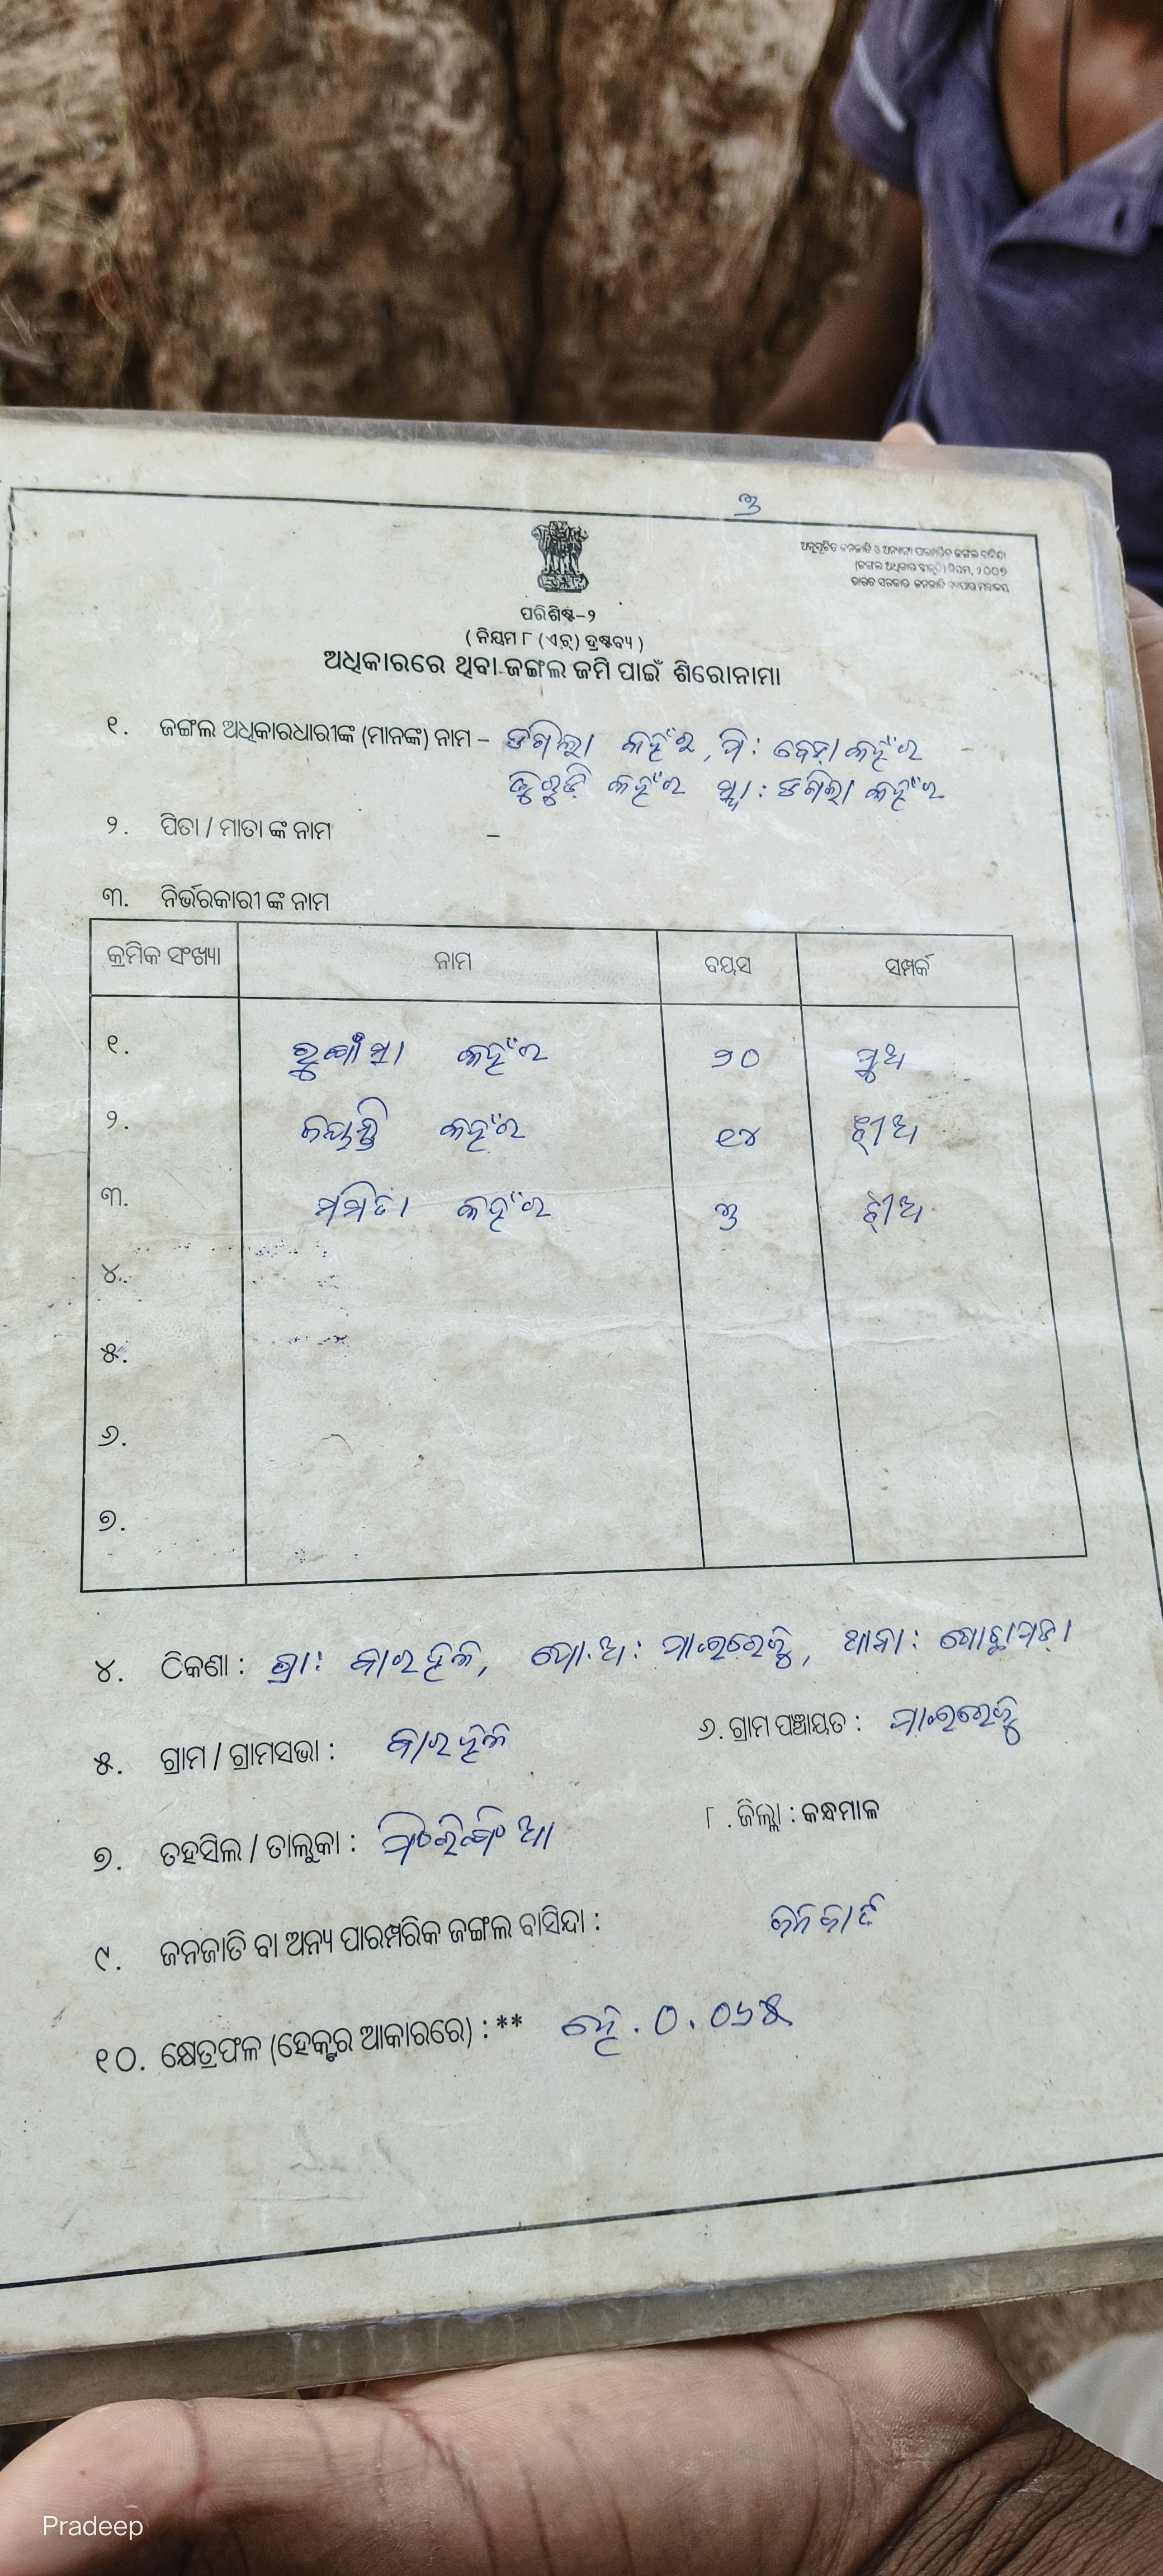 ୩
ଅନୁସୂଚିତ ଜନଜାତି ଓ ଅନ୍ୟାନ୍ୟ ପାରମ୍ପରିକ ଜଙ୍ଗଲ ବାସିନ୍ଦା
(ଜଙ୍ଗଲ ଅଧିକାର ସ୍ୱୀକୃତି) ନିୟମ, ୨୦୦୭
ଭାରତ ସରକାର ଜନଜାତି ବ୍ୟାପାର ମନ୍ତ୍ରାଳୟ
ପରିଶିଷ୍ଟ-୨
( ନିୟମ ୮ (ଏଚ୍) ଦ୍ରଷ୍ଟବ୍ୟ )
ଅଧିକାରରେ ଥିବା ଜଙ୍ଗଲ ଜମି ପାଇଁ ଶିରୋନାମା
୧. ଜଙ୍ଗଲ ଅଧିକାରଧାରୀଙ୍କ (ମାନଙ୍କ) ନାମ – କହଁର, ପି: କହଁର
କହଁର ସ୍ୱା: କହଁର
୨. ପିତା / ମାତା ଙ୍କ ନାମ –
୩. ନିର୍ଭରକାରୀ ଙ୍କ ନାମ
କ୍ରମିକ ସଂଖ୍ୟା ନାମ ବୟସ ସମ୍ପର୍କ
୧. କହଁର ୨୦ ପୁଅ
୨. ଜୟନ୍ତି କହଁର ୧୪ ଝିଅ
୩. ମମିତା କହଁର ୩ ଝିଅ
୪.
୫.
୬.
୭.
୪. ଠିକଣା : ଗ୍ରା: ପୋ.ଅ: ଥାନା: ଗୋଚ୍ଛାପଡା
୫. ଗ୍ରାମ / ଗ୍ରାମସଭା :
୬. ଗ୍ରାମ ପଞ୍ଚାୟତ :
୭. ତହସିଲ / ତାଲୁକା : ଫିରିଙ୍ଗିଆ
୮. ଜିଲ୍ଲା : କନ୍ଧମାଳ
୯. ଜନଜାତି ବା ଅନ୍ୟ ପାରମ୍ପରିକ ଜଙ୍ଗଲ ବାସିନ୍ଦା : ଜନଜାତି
୧୦. କ୍ଷେତ୍ରଫଳ (ହେକ୍ଟର ଆକାରରେ) : ** ହେ. ୦.୦୬୫
Pradeep